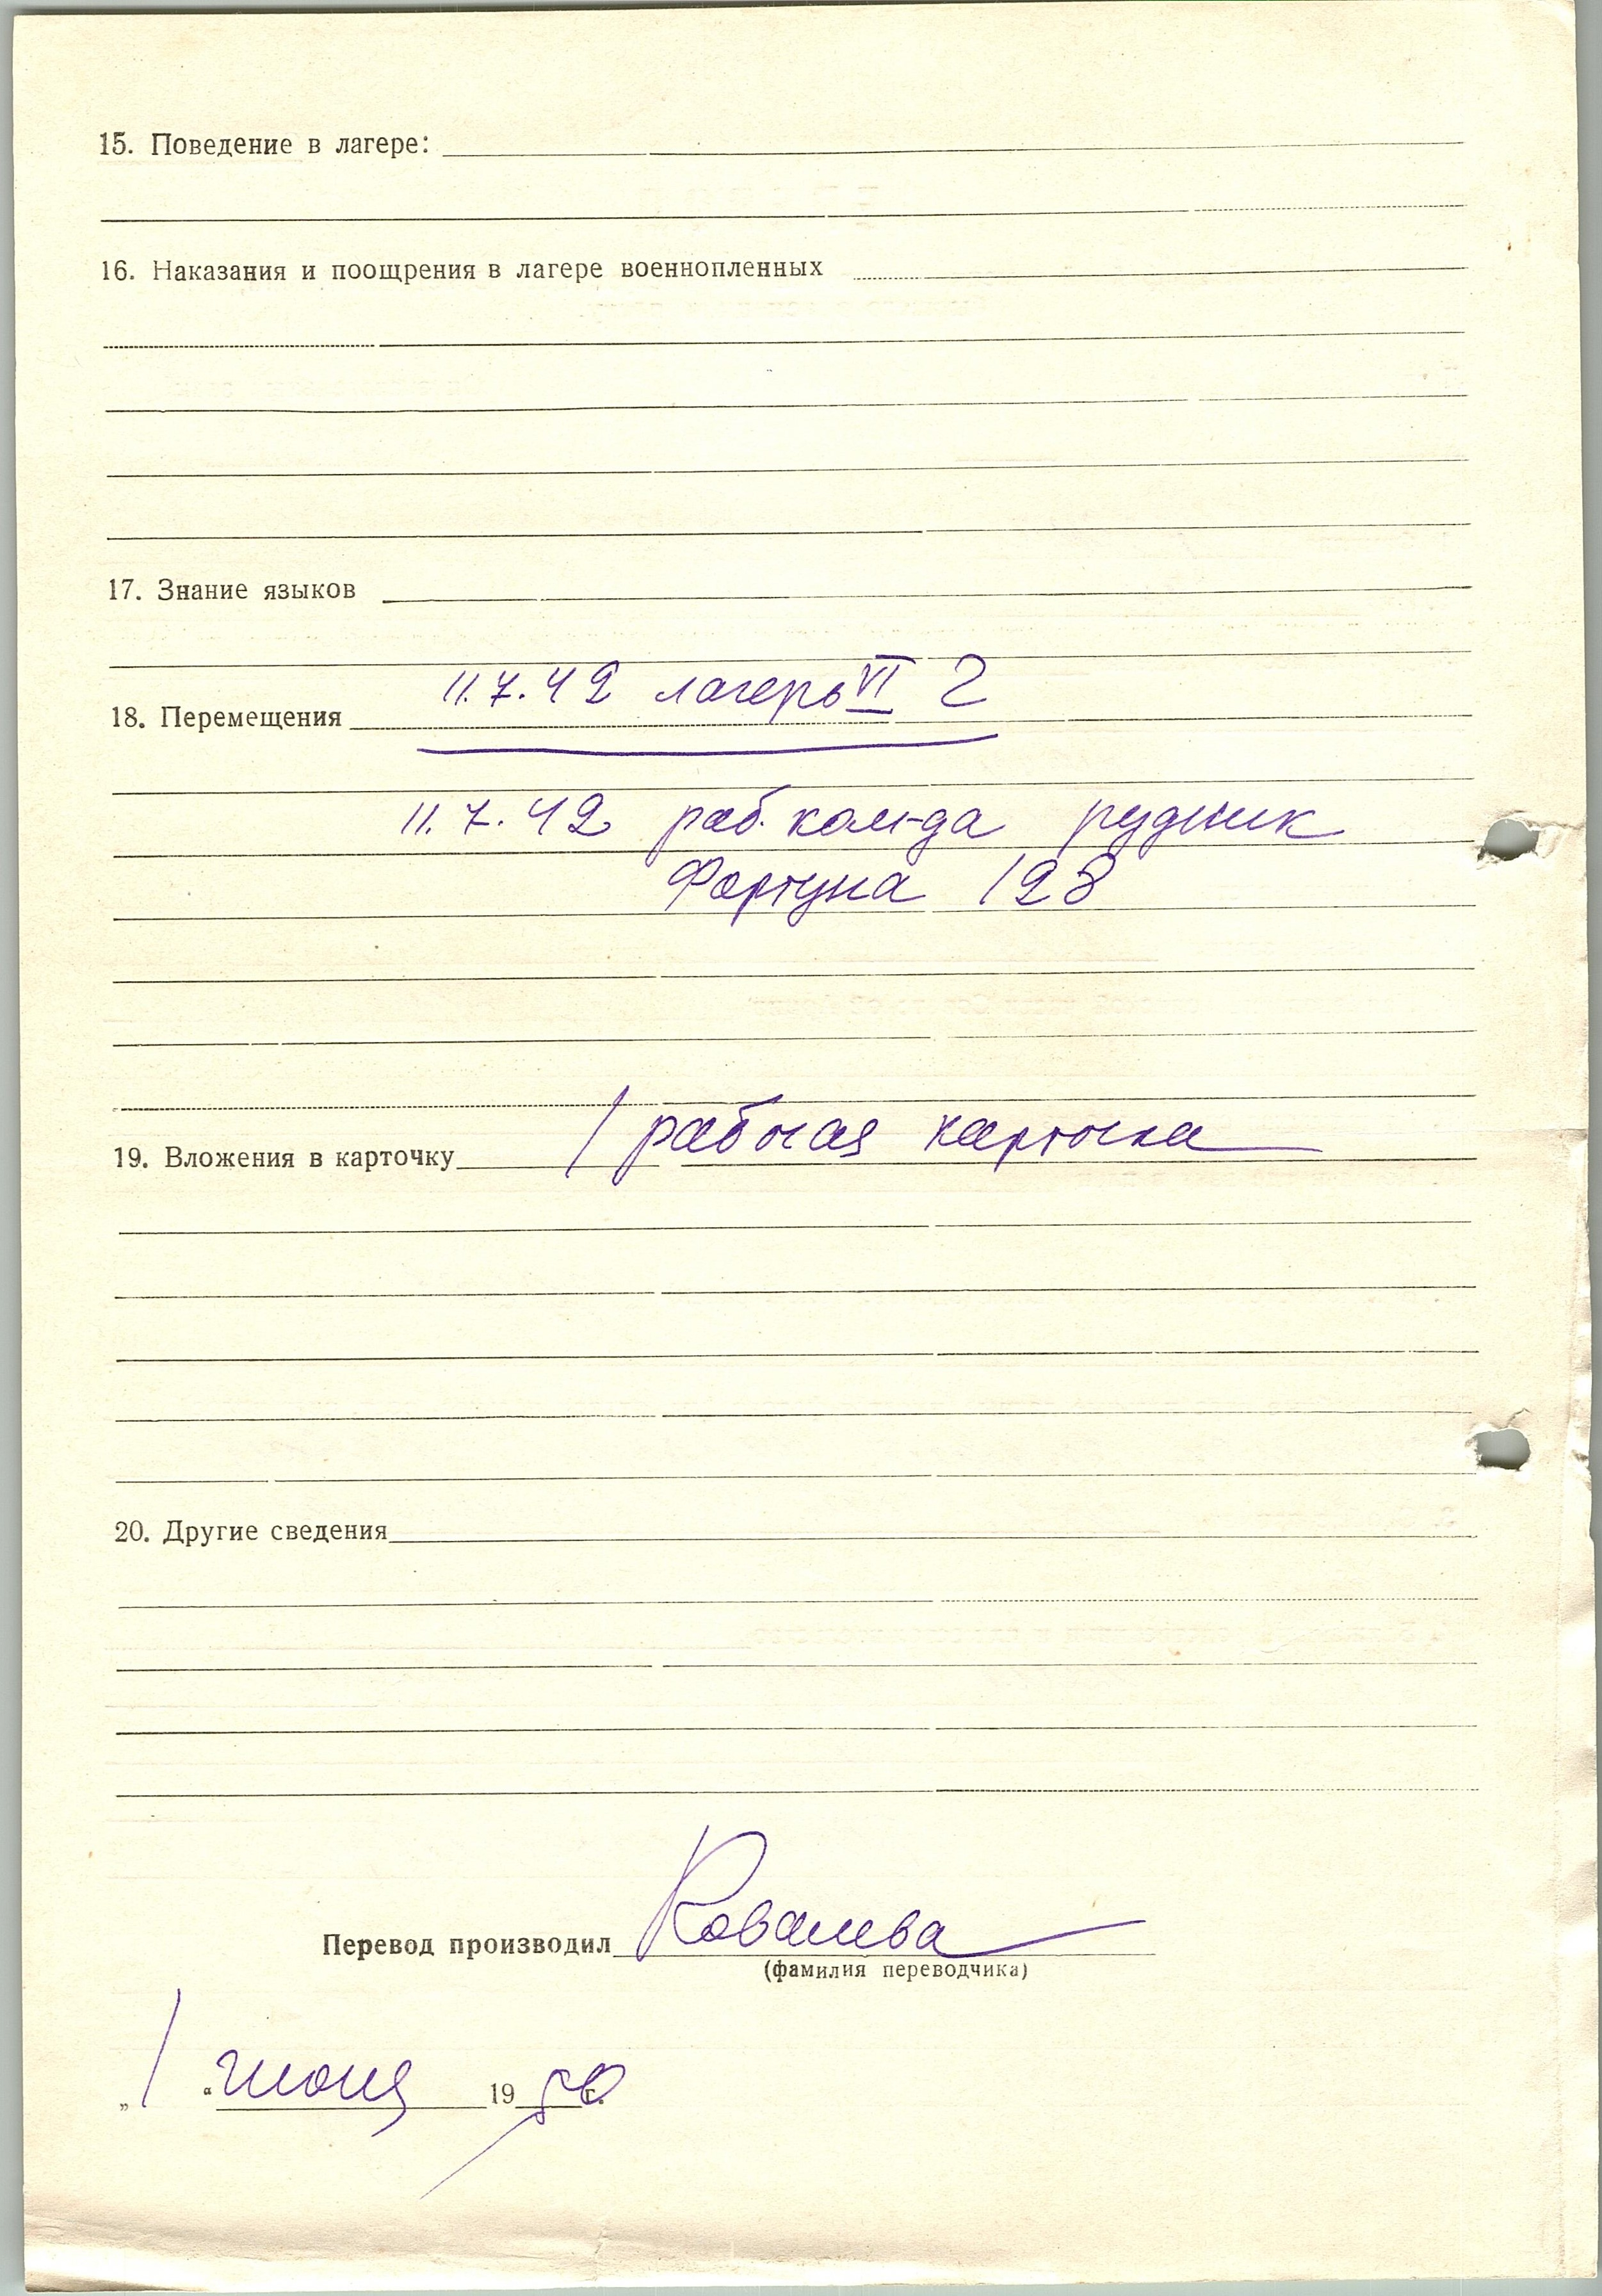 15. Поведение в лагере:
16. Наказания и поощрения в лагере военнопленных
17. Знание языков
11.7.42 лагерь VI Г
18. Перемещения
11.7.42 раб. ком-да рудник
Фортуна 128
1 рабочая карточка
19. Вложения в карточку
20. Другие сведения
Перевод производил Ковалева
(фамилия переводчика)
„1“ июня 1950 г.